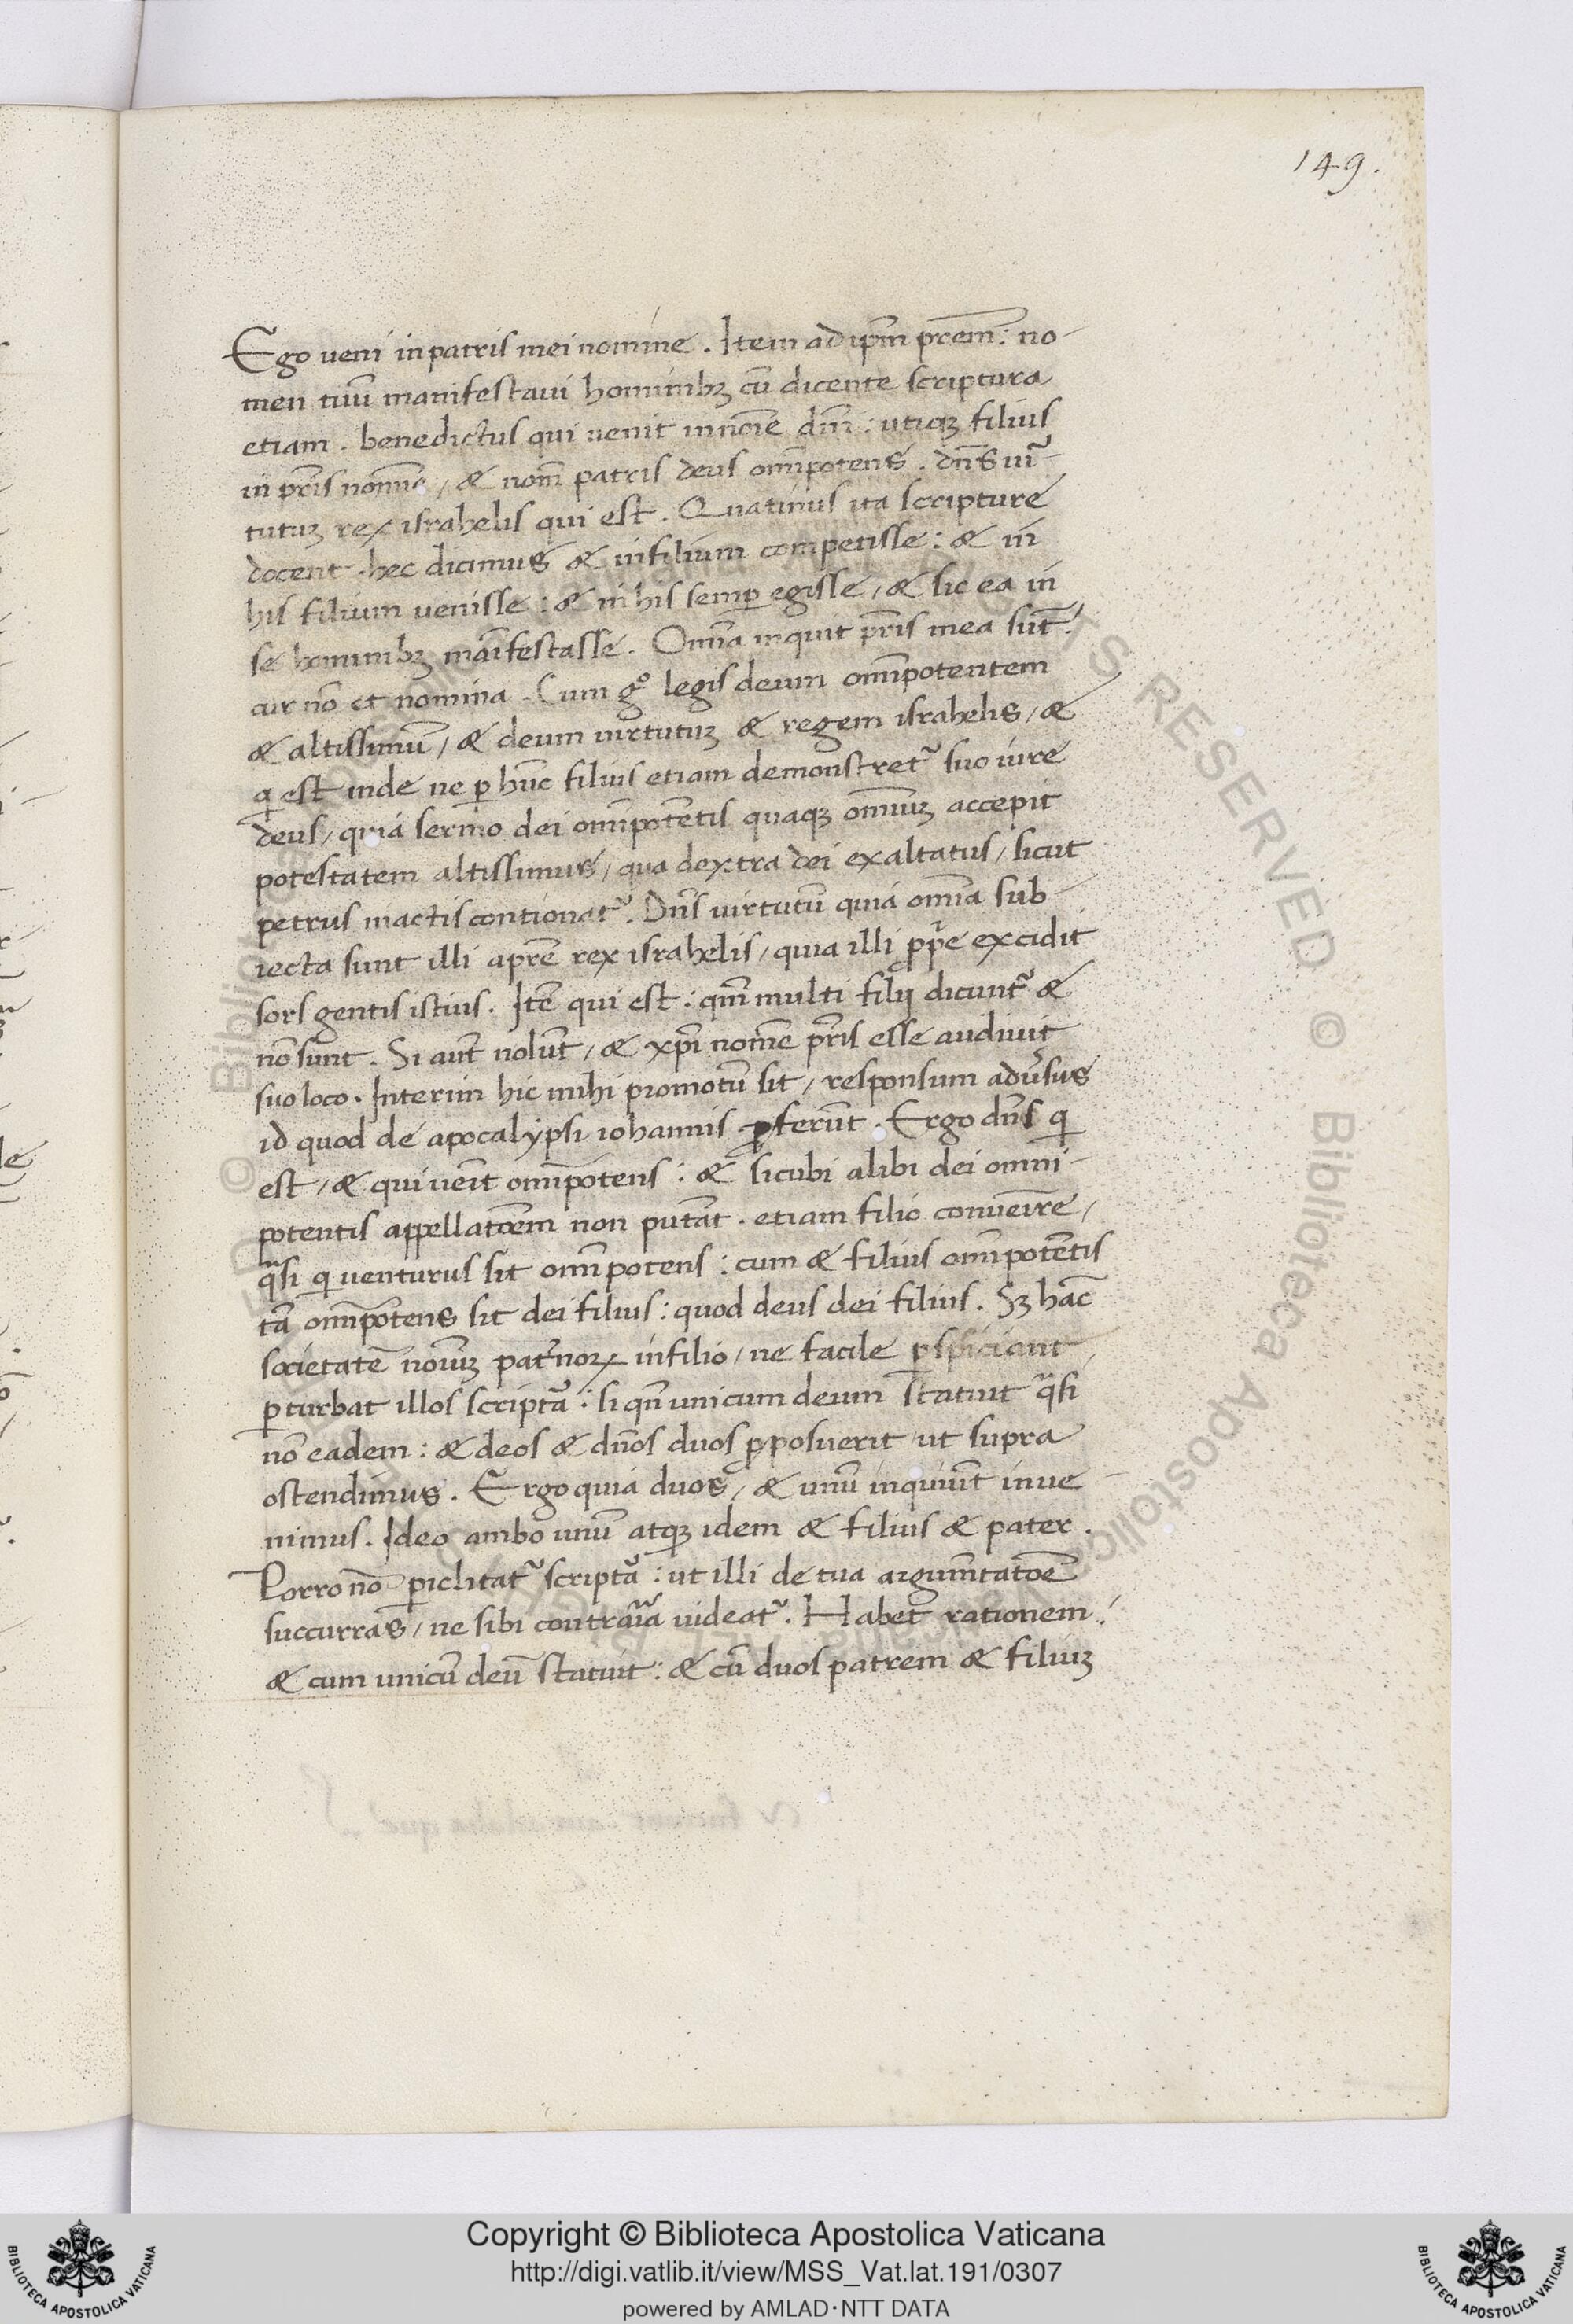 149.
Ego veni in patris mei nomine. Item ad ip̄m prēm: no-
men tuū manifestavi hominibꝫ cū dicente scriptura
etiam. benedictus qui venit in noīe dn̄i: utiqꝫ filius
in pr̄is nomine, & nom̄ patris deus omīpotens. dn̄s vir̃-
tutuꝫ rex israhelis qui est. Quatinus ita scripture
docent. hec dicimus & in filium competisse: & in
his filium venisse: & in his semꝑ egisse, & sic ea in
se hominibꝫ maīfestasse. Omīa inquit pr̄is mea sūt:
cur nō et nomina. Cum gͦ legis deum omīpotentem
& altissimū, & deum virtutuꝫ & regem israhelis, &
qͥ est inde ne ꝑ hūc filius etiam demonstret᷑ suo iure
deus, quia sermo dei omīpotētis quaqꝫ omīuꝫ accepit
potestatem altissimus, qua dextra dei exaltatus, sicut
petrus in actis contionat᷑. Dn̄s virtutū quia omīa sub-
iecta sunt illi a prē rex israhelis, quia illi ꝓp̄e excidit
sors gentis istius. Itē qui est: qm̄ multi filij dicunt᷑ &
nō sunt. Si aūt nolūt, & xp̄i nomē pr̄is esse audivit
suo loco. Interim hic mihi promotū sit, responsum adv̓sus
id quod de apocalypsi iohannis ꝓferūt. Ergo dn̄s qͥ
est, & qui veīt omīpotens: & sicubi alibi dei omni-
potentis appellatōem non putāt. etiam filio conveīre,
qͣsi qͥ venturus sit omīpotens: cum & filius omīpotētis
tā omīpotens sit dei filius: quod deus dei filius. Sꝫ hāc
societatē noīuꝫ pat̓noꝝ in filio, ne facile ꝑspiciant
ꝑturbat illos script᷑a: si qn̄ unicum deum statuit qͣsi
nō eadem: & deos & dn̄os duos ꝓposuerit ut supra
ostendimus. Ergo quia duos, & unū inquiūt inve-
nimus. Ideo ambo unū atqꝫ idem & filius & pater.
Porro nō ꝑiclitat᷑ script᷑a: ut illi de tua argum̄tatōe
succurras, ne sibi contraͥa videat᷑. Habet rationem:
& cum unicū deū statuit: & cū duos patrem & filiuꝫ
© Biblioteca Apostolica Vaticana
RESERVED © Biblioteca Apostolica
Copyright © Biblioteca Apostolica Vaticana
http://digi.vatlib.it/view/MSS_Vat.lat.191/0307
powered by AMLAD·NTT DATA
BIBLIOTECA APOSTOLICA VATICANA
BIBLIOTECA APOSTOLICA VATICANA